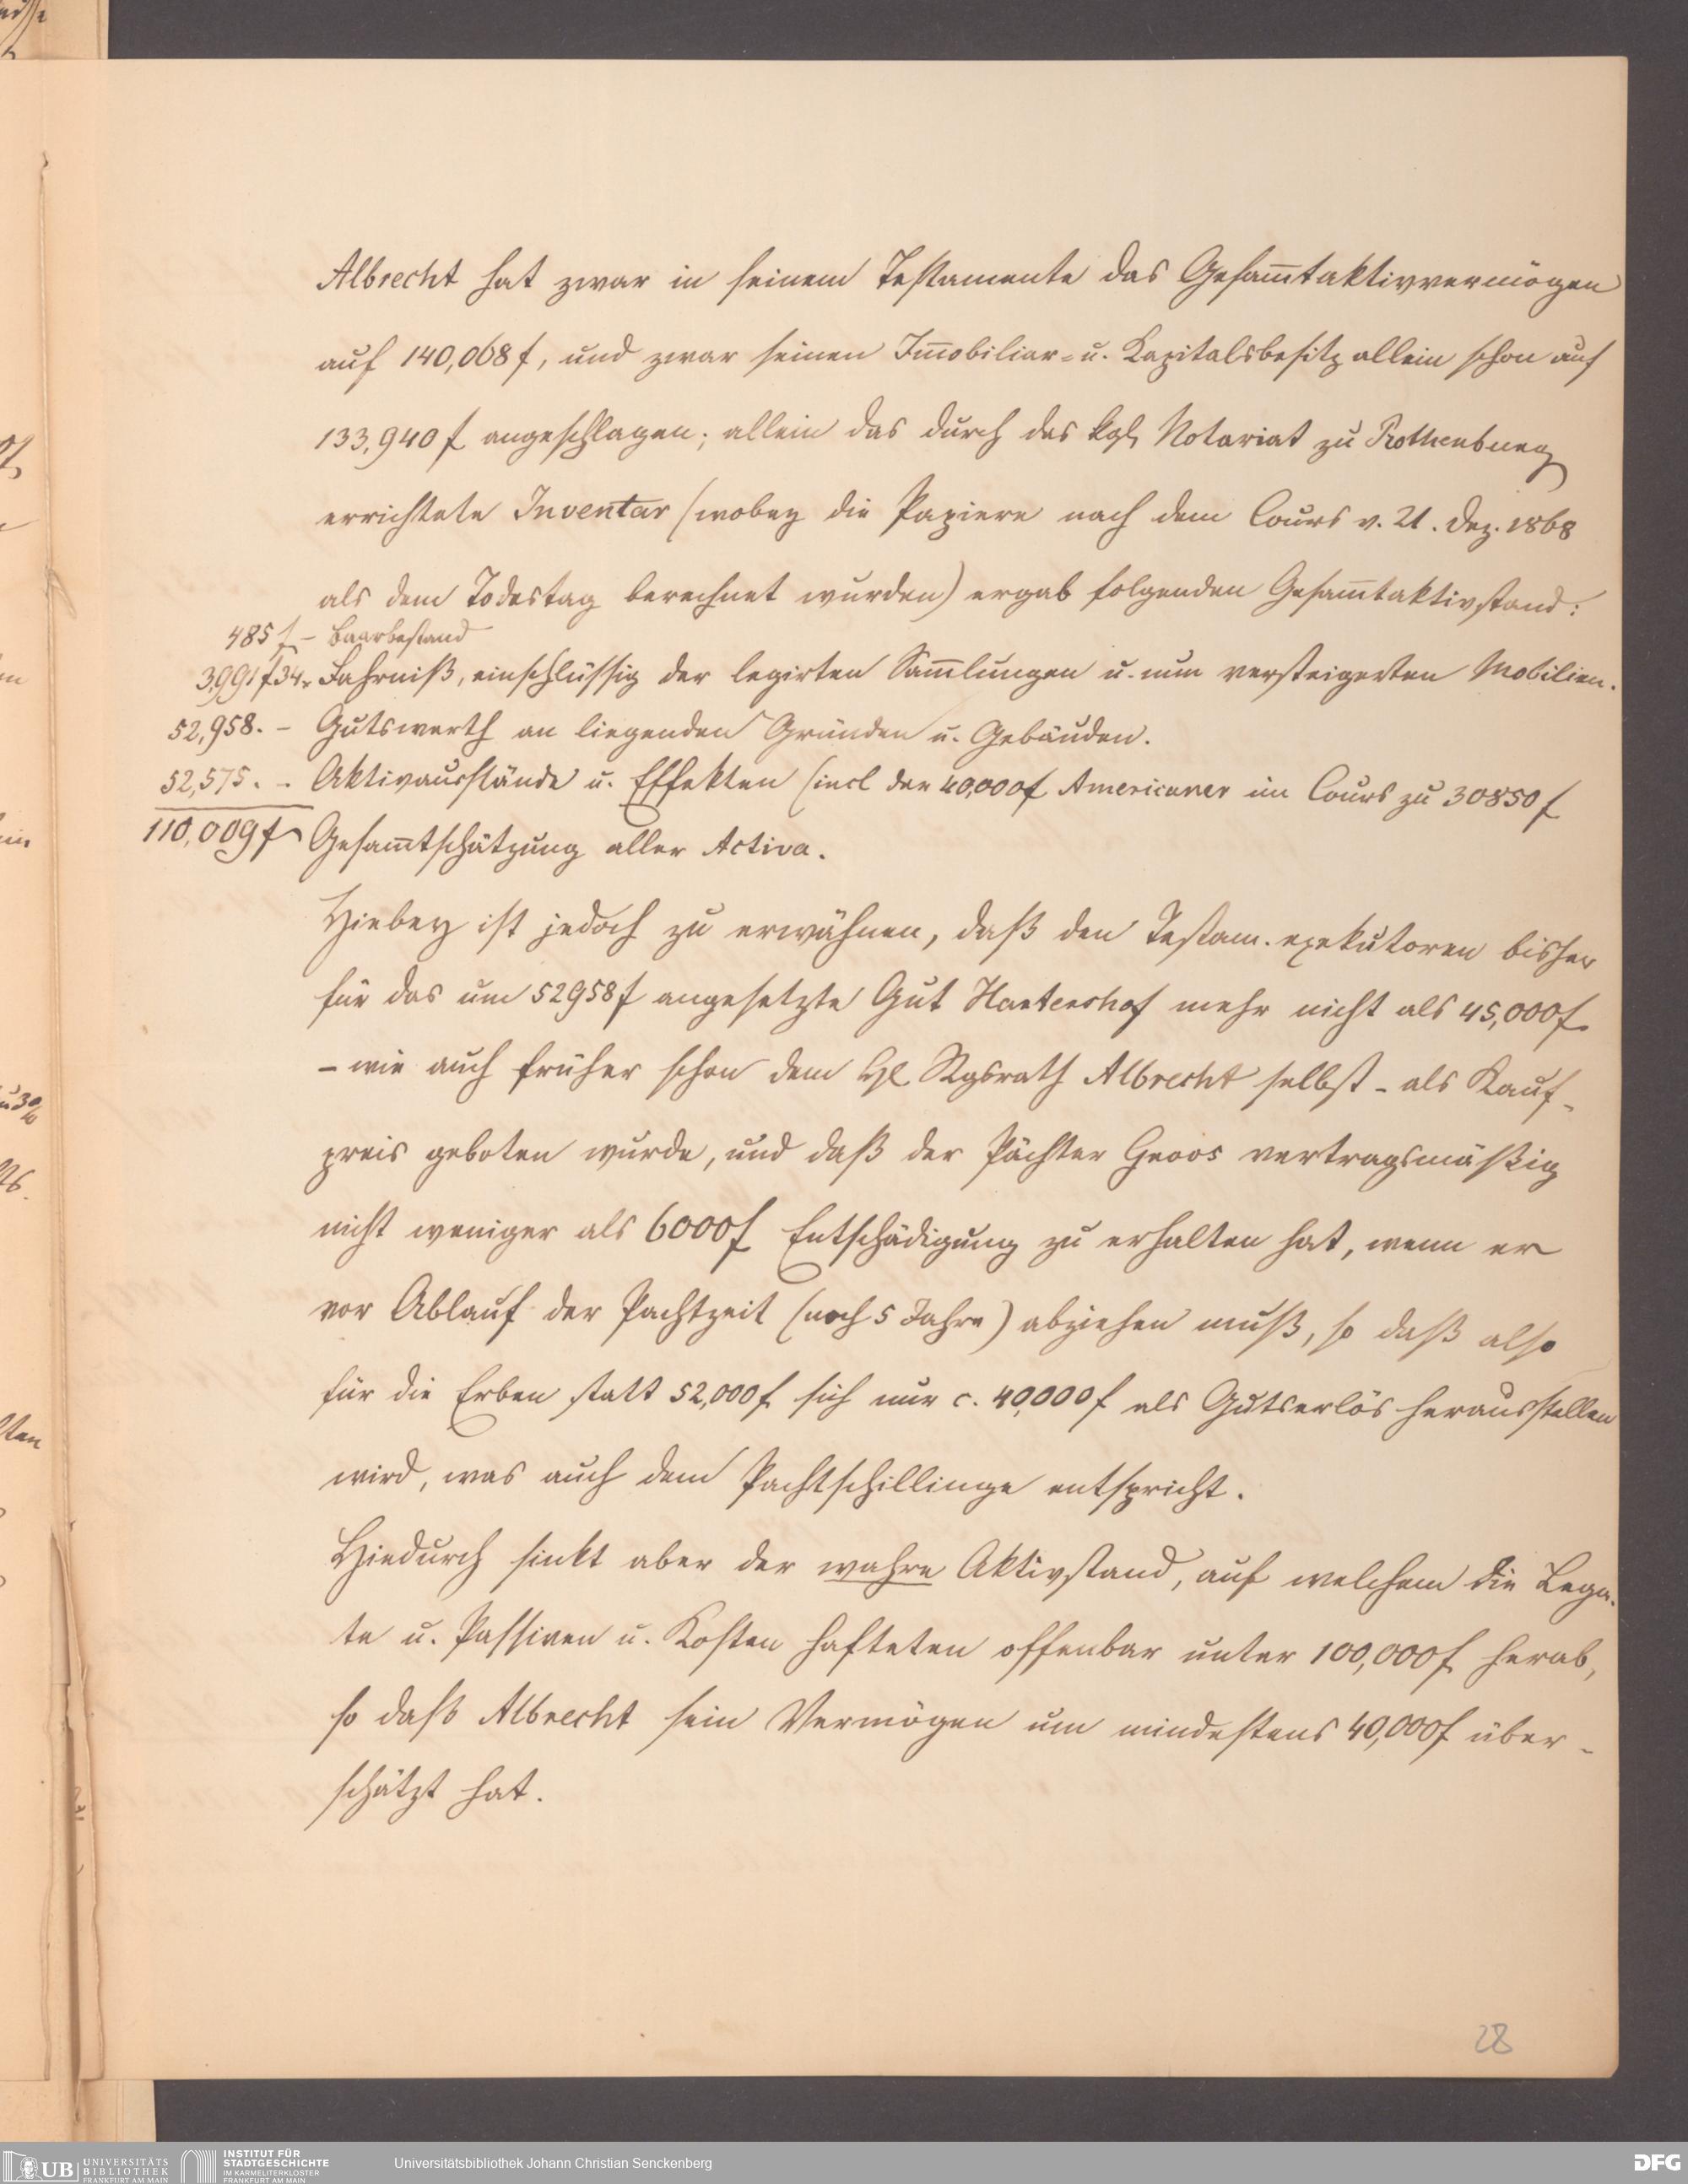 Albrecht hat zwar in seinem Testamente das Gesam̅taktivvermögen
auf 140,068 f, und zwar seinen Im̅obiliar- u. Kapitalsbesitz allein schon auf
133,940 f angeschlagen; allein das durch das kgl. Notariat zu Rothenburg
errichtete Inventar (wobey die Papiere nach dem Cours v. 21. Dez. 1868
als dem Todestag berechnet wurden) ergab folgenden Gesam̅taktivstand:
485 f – Baarbestand
3,991 f 34. Fahrniß, einschlüssig der legirten Sam̅lungen u. nun versteigerten Mobilien.
52,958. – Gutswerth an liegenden Gründen u. Gebäuden.
52,575. – Aktivausstände u. Effekten (incl der 40,000 f Americaner im Cours zu 30850 f
110,009 f Gesam̅tschätzung aller Activa.
Hiebey ist jedoch zu erwähnen, daß den Testam. exekutoren bisher
für das um 52958 f angesetzte Gut mehr nicht als 45,000 f
– wie auch früher schon dem Rgsrath Albrecht selbst – als Kauf-
preis geboten wurde, und daß der Pächter Groos vertragsmäßig
nicht weniger als 6000 f Entschädigung zu erhalten hat, wenn er
vor Ablauf der Pachtzeit (noch 5 Jahre) abziehen muß, so daß also
für die Erben statt 52,000 f sich nur c. 40,000 f als Gutserlös herausstellen
wird, was auch dem Pachtschillinge entspricht.
Hiedurch sinkt aber der wahre Aktivstand, auf welchem die Lega-
te u. Passiven u. Kosten hafteten offenbar unter 100,000 f herab,
so daß Albrecht sein Vermögen um mindestens 40,000 f über-
schätzt hat.
28
UB UNIVERSITÄTS
BIBLIOTHEK
FRANKFURT AM MAIN
INSTITUT FÜR
STADTGESCHICHTE
IM KARMELITERKLOSTER
FRANKFURT AM MAIN
Universitätsbibliothek Johann Christian Senckenberg
DFG